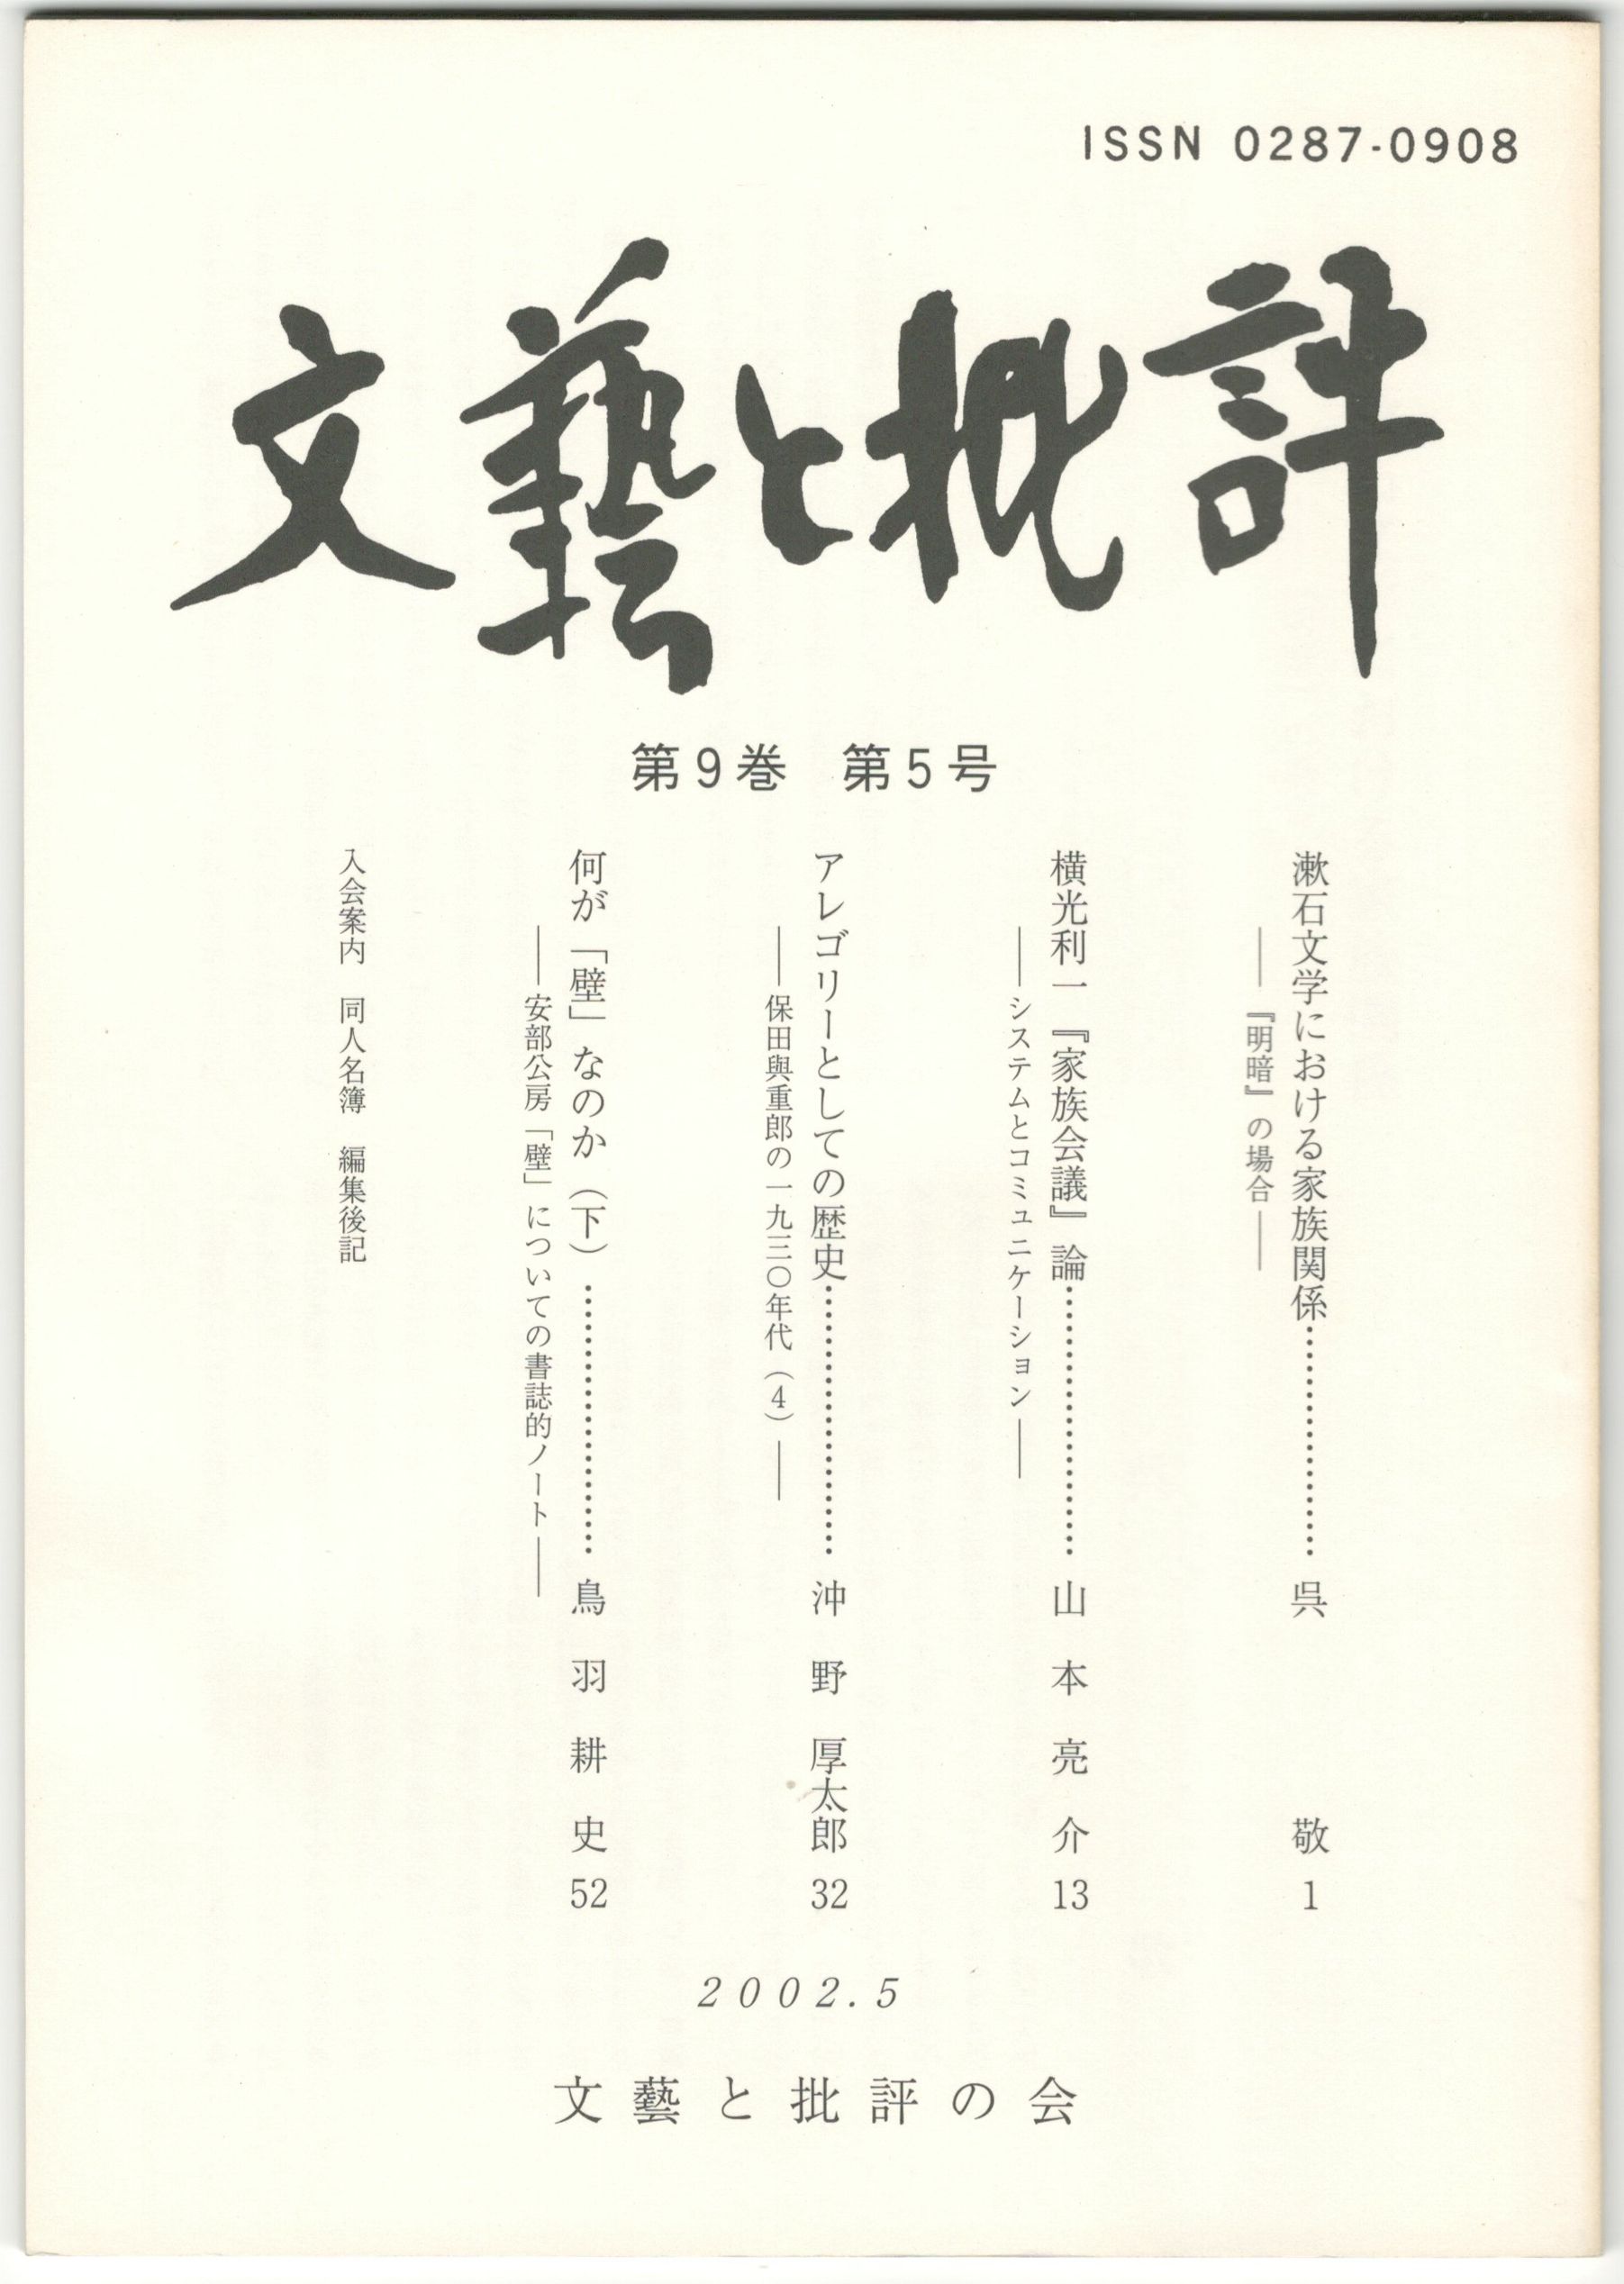 ISSN 0287-0908
文藝と批評
第9巻 第5号
漱石文学における家族関係……………… 呉 敬 1
――『明暗』の場合――
横光利一『家族会議』論……………… 山本亮介 13
――システムとコミュニケーション――
アレゴリーとしての歴史……………… 沖野厚太郎 32
――保田與重郎の一九三〇年代（4）――
何が「壁」なのか（下）……………… 鳥羽耕史 52
――安部公房「壁」についての書誌的ノート――
入会案内 同人名簿 編集後記
2002.5
文藝と批評の会